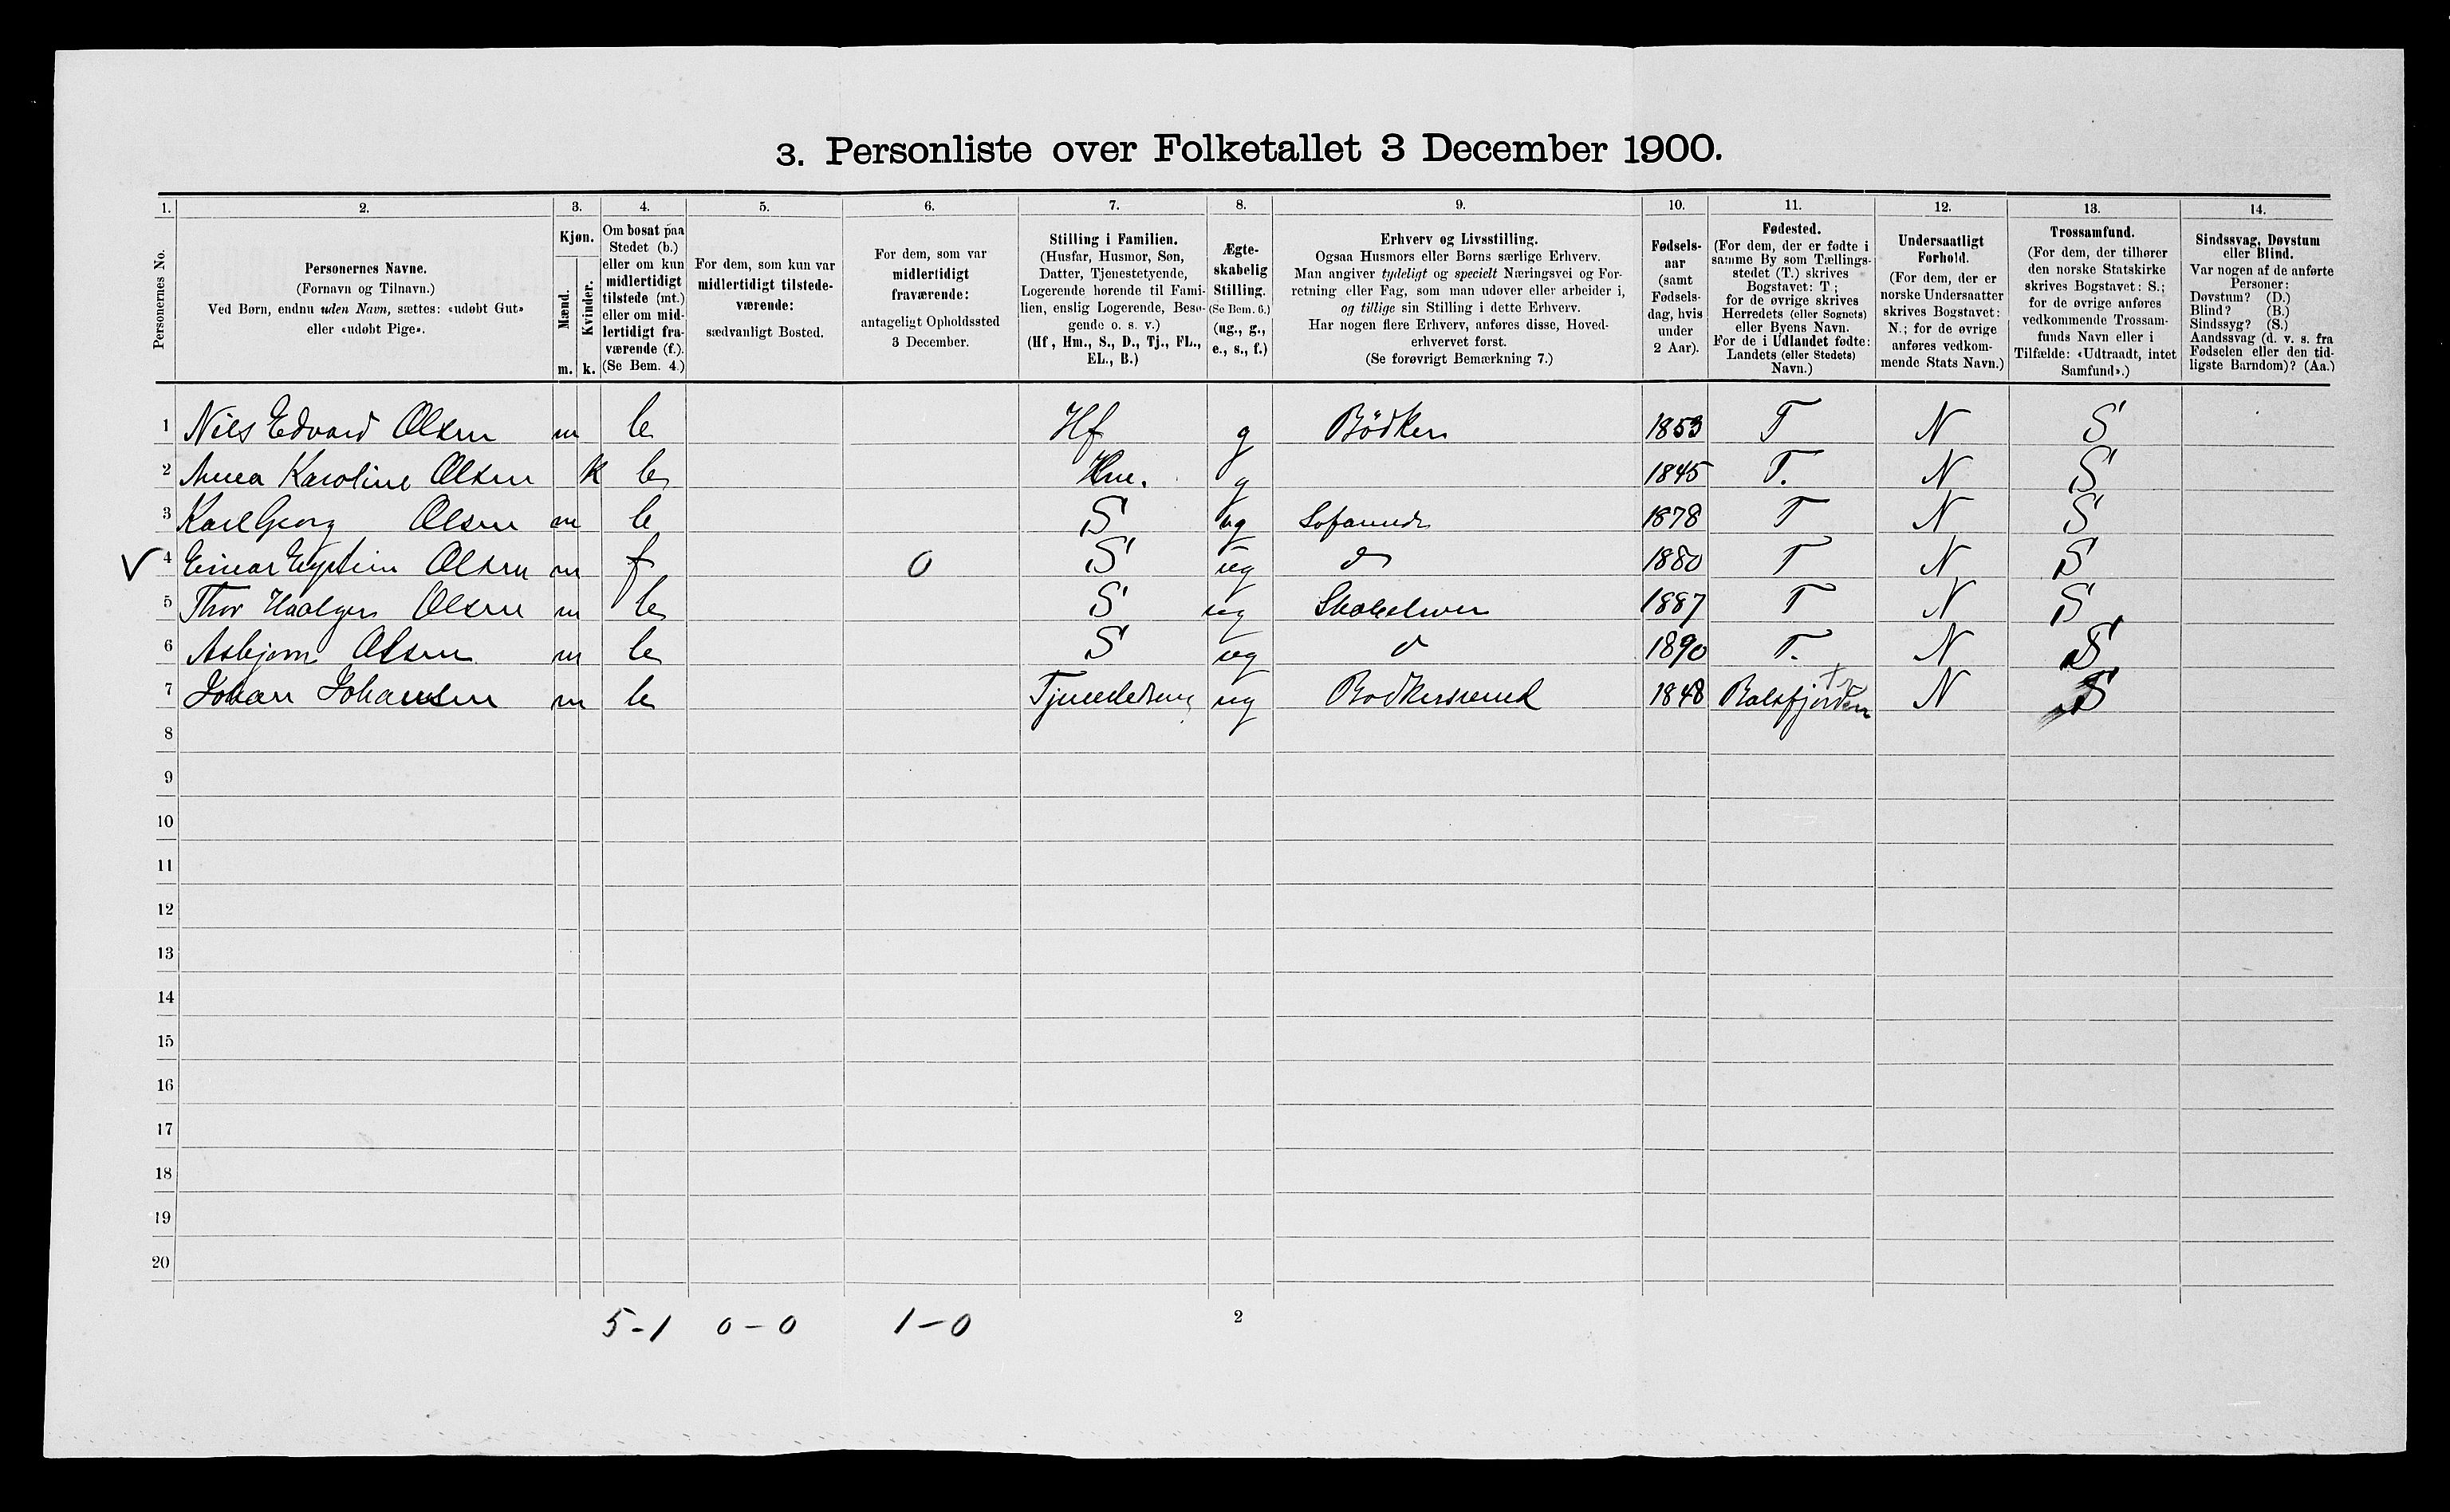 3. Personliste over Folketallet 3 December 1900.
1. 2. 3. 4. 5. 6. 7. 8. 9. 10. 11. 12. 13. 14.
Personernes No.
Personernes Navne.
(Fornavn og Tilnavn.)
Ved Børn, endnu uden Navn, sættes: «udøbt Gut»
eller «udøbt Pige».
Kjøn.
Mænd.
Kvinder.
m. k.
Om bosat paa
Stedet (b.)
eller om kun
midlertidigt
tilstede (mt.)
eller om mid-
lertidigt fra-
værende (f.).
(Se Bem. 4.)
For dem, som kun var
midlertidigt tilstede-
værende:
sædvanligt Bosted.
For dem, som var
midlertidigt
fraværende:
antageligt Opholdssted
3 December.
Stilling i Familien.
(Husfar, Husmor, Søn,
Datter, Tjenestetyende,
Logerende hørende til Fami-
lien, enslig Logerende, Besø-
gende o. s. v.)
(Hf, Hm., S., D., Tj., FL.,
EL., B.)
Ægte-
skabelig
Stilling.
(Se Bem. 6.)
(ug., g.,
e., s., f.)
Erhverv og Livsstilling.
Ogsaa Husmors eller Børns særlige Erhverv.
Man angiver tydeligt og specielt Næringsvei og For-
retning eller Fag, som man udøver eller arbeider i,
og tillige sin Stilling i dette Erhverv.
Har nogen flere Erhverv, anføres disse, Hoved-
erhvervet først.
(Se forøvrigt Bemærkning 7.)
Fødsels-
aar
(samt
Fødsels-
dag, hvis
under
2 Aar).
Fødested.
(For dem, der er fødte i
samme By som Tællings-
stedet (T.) skrives
Bogstavet: T.;
for de øvrige skrives
Herredets (eller Sognets)
eller Byens Navn.
For de i Udlandet fødte:
Landets (eller Stedets)
Navn.)
Undersaatligt
Forhold.
(For dem, der er
norske Undersaatter
skrives Bogstavet:
N.; for de øvrige
anføres vedkom-
mende Stats Navn.)
Trossamfund.
(For dem, der tilhører
den norske Statskirke
skrives Bogstavet: S.;
for de øvrige anføres
vedkommende Trossam-
funds Navn eller i
Tilfælde: «Udtraadt, intet
Samfund».)
Sindssvag, Døvstum
eller Blind.
Var nogen af de anførte
Personer:
Døvstum? (D.)
Blind? (B.)
Sindssyg? (S.)
Aandssvag (d. v. s. fra
Fødselen eller den tid-
ligste Barndom)? (Aa.)
1 Nils Edvard Olsen m b Hf g Bödker 1853 T N S
2 Anna Karoline Olsen k b Hm. g 1845 T. N S
3 Karl Georg Olsen m b S ug Sømand 1878 T N S
4 Einar Eystein Olsen m f 0 S ug d 1880 T N S
5 Thor Olsen m b S ug Skoleelever 1887 T N S
6 Asbjørn Olsen m b S ug d 1890 T. N S
7 Johan Johansen m b ug Bødkersvend 1848 Balsfjorden N S
8
9
10
11
12
13
14
15
16
17
18
19
20
5-1 0-0 1-0 2